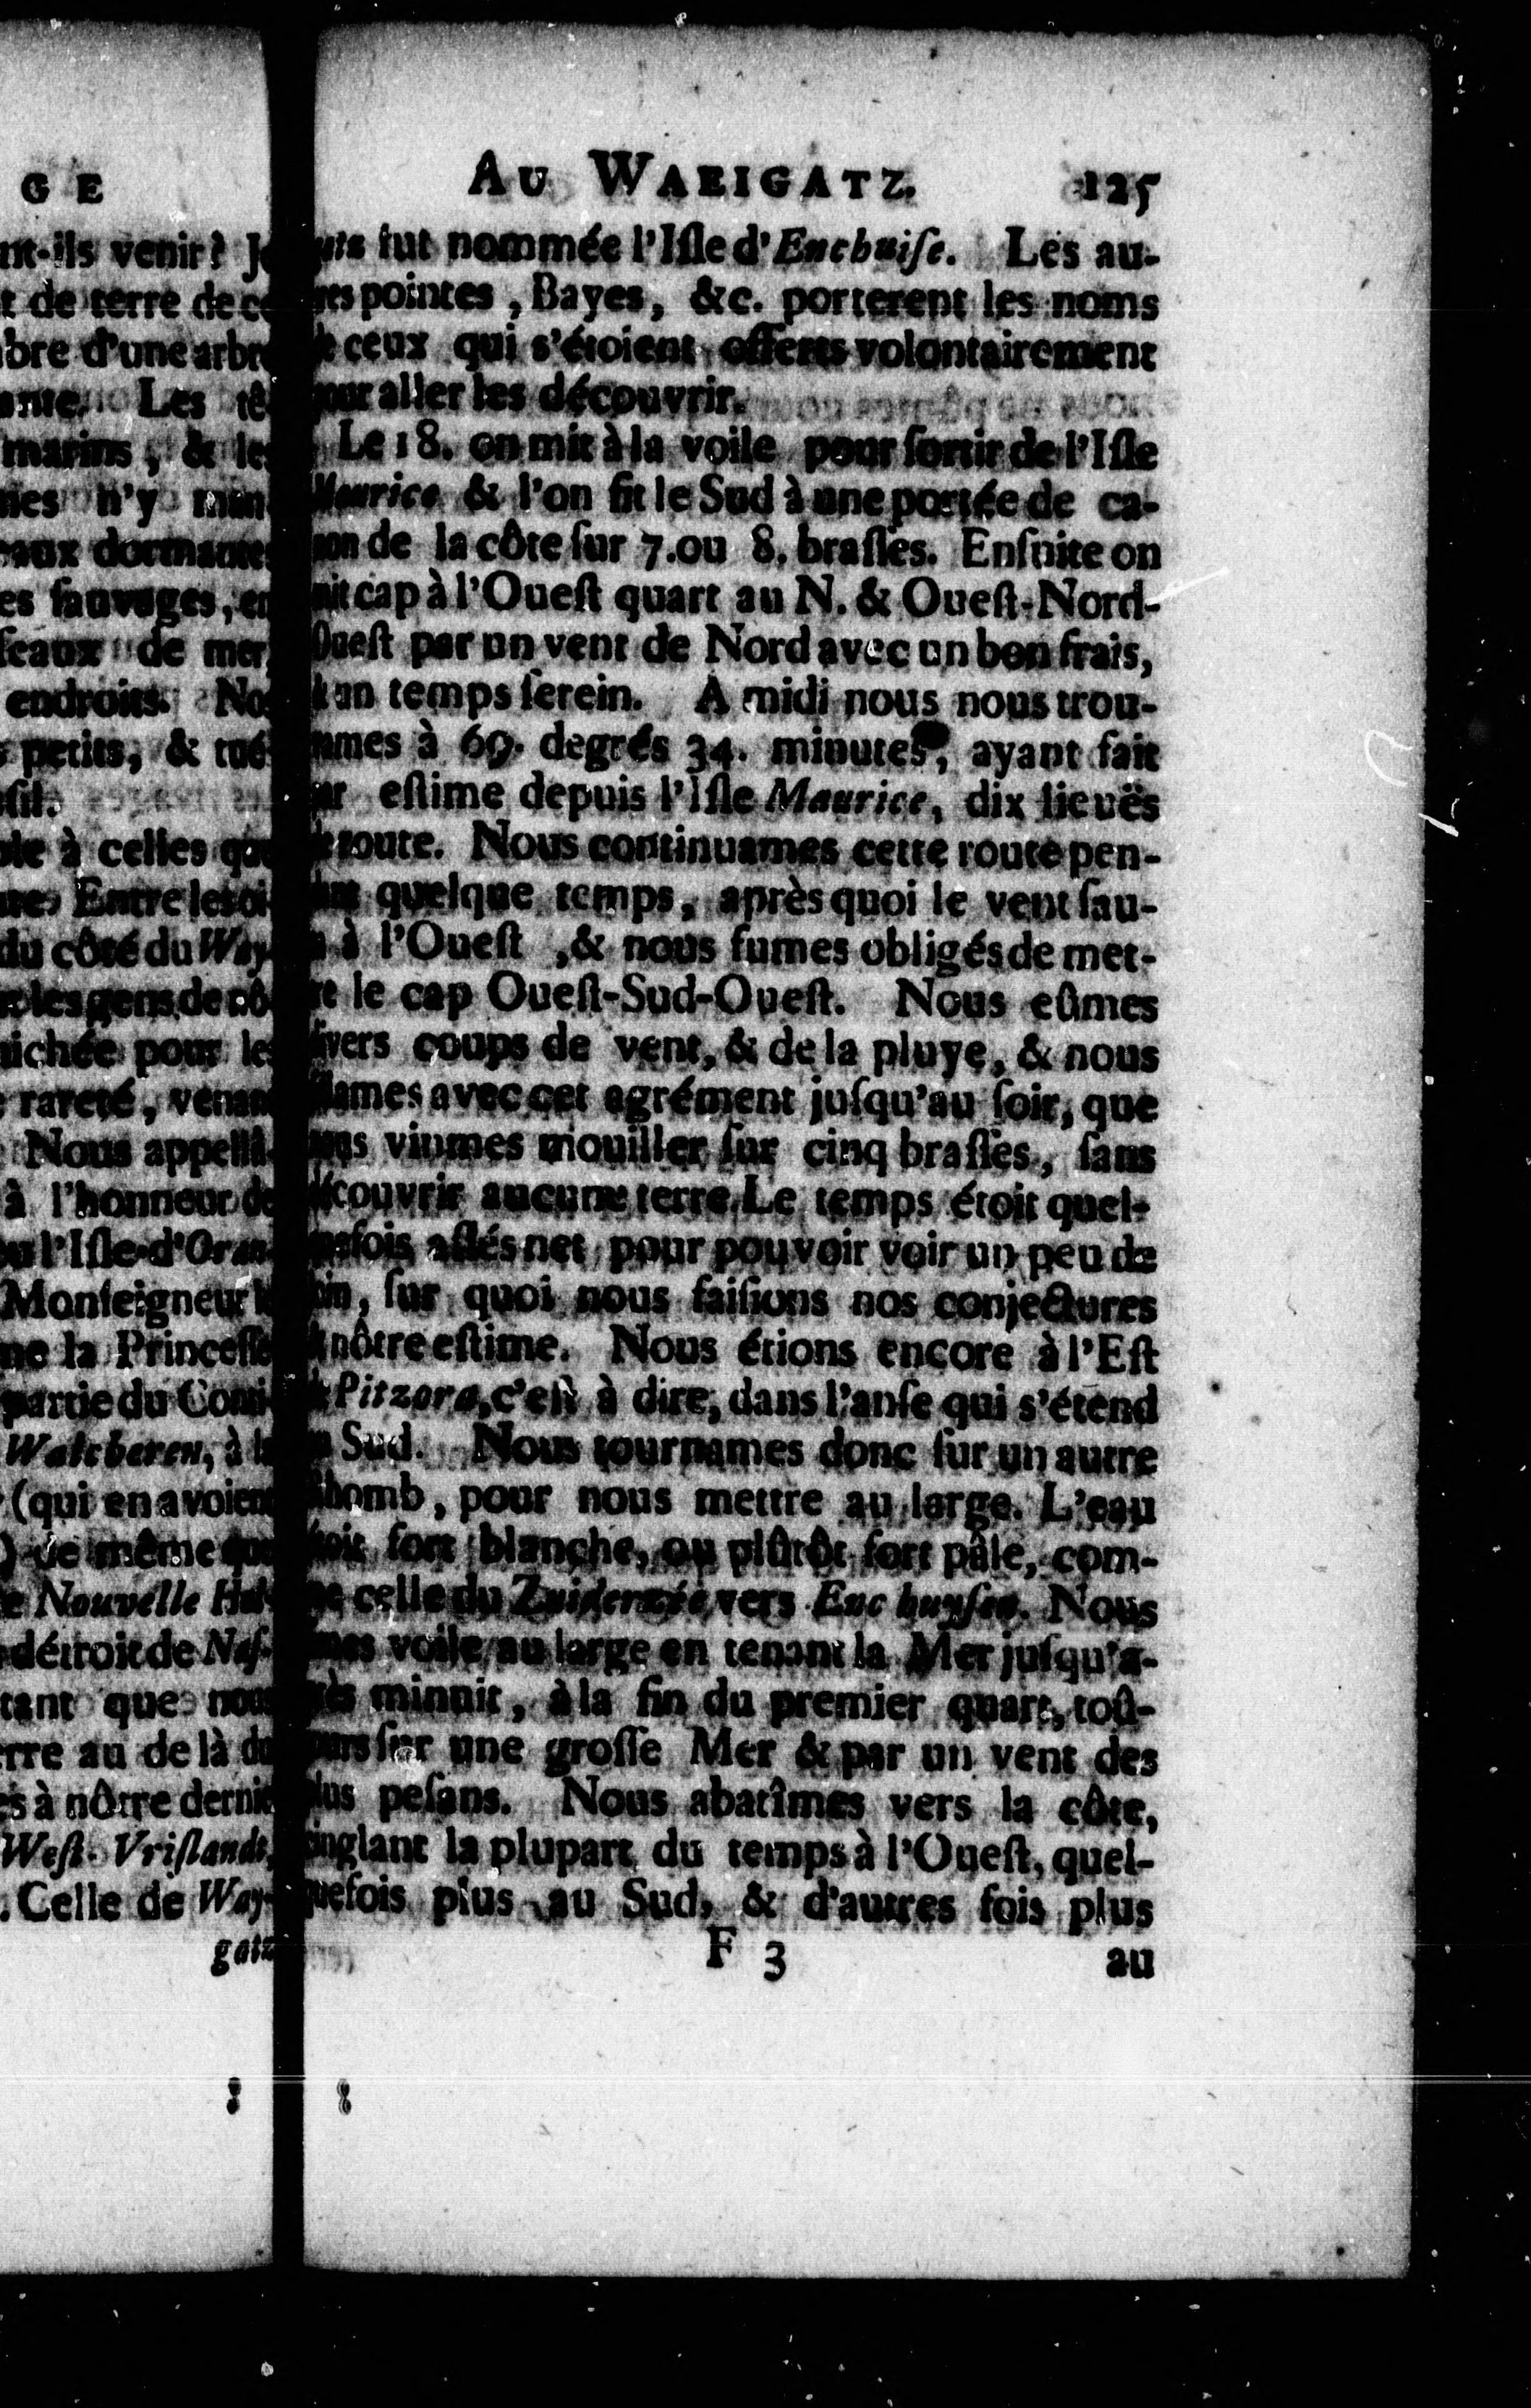 G E
nt-ils venir? Je
t de terre de ce
bre d'une arbre
ante. Les tê-
marins, & les
nes n'y man
eaux dormantes
es sauvages, en
seaux de mer,
endroits. Nos
s petits, & tué
sil.
ble à celles que
Entre les oi-
du côté du Way-
les gens de nô-
nichée pour les
rareté, venant
Nous appellâ-
à l'honneur de
l'Isle d'Oran-
Monseigneur le
me la Princesse
partie du Conti-
Walcheren, à la
(qui en avoient
de même que
Nouvelle Hol-
détroit de Nas-
tant que nous
erre au de là du
es à nôtre dernier
West-Vrislandt,
. Celle de Way-
gatz
AU WAEIGATZ. 125
fut nommée l'Iſle d'Enchuiſe. Les au-
tres pointes, Bayes, &c. porterent les noms
de ceux qui s'étoient offerts volontairement
pour aller les découvrir.
Le 18. on mit à la voile pour ſortir de l'Iſle
Maurice & l'on fit le Sud à une portée de ca-
non de la côte ſur 7. ou 8. braſſes. Enſuite on
mit cap à l'Oueſt quart au N. & Oueſt-Nord-
Oueſt par un vent de Nord avec un bon frais,
& un temps ſerein. A midi nous nous trou-
vames à 69. degrés 34. minutes, ayant fait
par eſtime depuis l'Iſle Maurice, dix lieuës
de route. Nous continuames cette route pen-
dant quelque temps, après quoi le vent ſau-
ta à l'Oueſt, & nous fumes obligés de met-
tre le cap Oueſt-Sud-Oueſt. Nous eûmes
divers coups de vent, & de la pluye, & nous
allames avec cet agrément juſqu'au ſoir, que
nous vinmes mouiller ſur cinq braſſes, ſans
découvrir aucune terre. Le temps étoit quel-
quefois aſſés net pour pouvoir voir un peu de
loin, ſur quoi nous faiſions nos conjectures
& nôtre eſtime. Nous étions encore à l'Eſt
de Pitzora, c'eſt à dire, dans l'anſe qui s'étend
au Sud. Nous tournames donc ſur un autre
Rhomb, pour nous mettre au large. L'eau
étoit fort blanche, ou plûtôt fort pâle, com-
me celle du Zuiderzée vers Enchuyſen. Nous
mes voile au large en tenant la Mer juſqu'a-
près minuit, à la fin du premier quart, toû-
jours ſur une groſſe Mer & par un vent des
plus peſans. Nous abatîmes vers la côte,
cinglant la plupart du temps à l'Oueſt, quel-
quefois plus au Sud, & d'autres fois plus
F 3 au